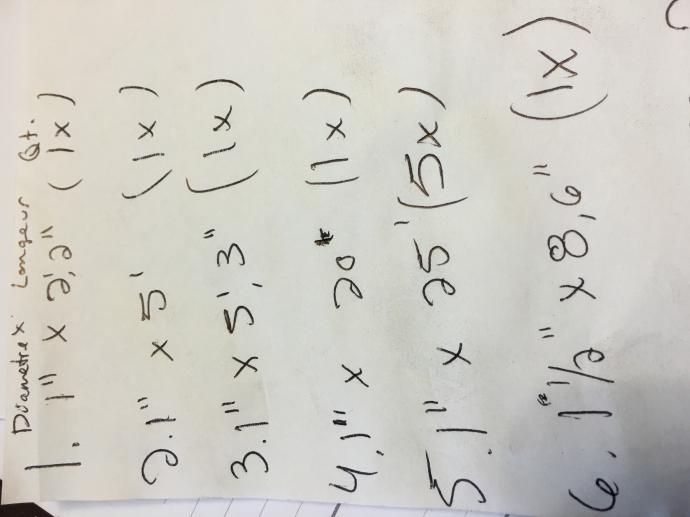 Diametre x Longeur Qt.
1. 1" x 2',2" (1x)
2. 1" x 5' (1x)
3. 1" x 5', 3" (1x)
4. 1" x 20' (1x)
5. 1" x 25' (5x)
6. 1 1/2" x 8, 6" (1x)